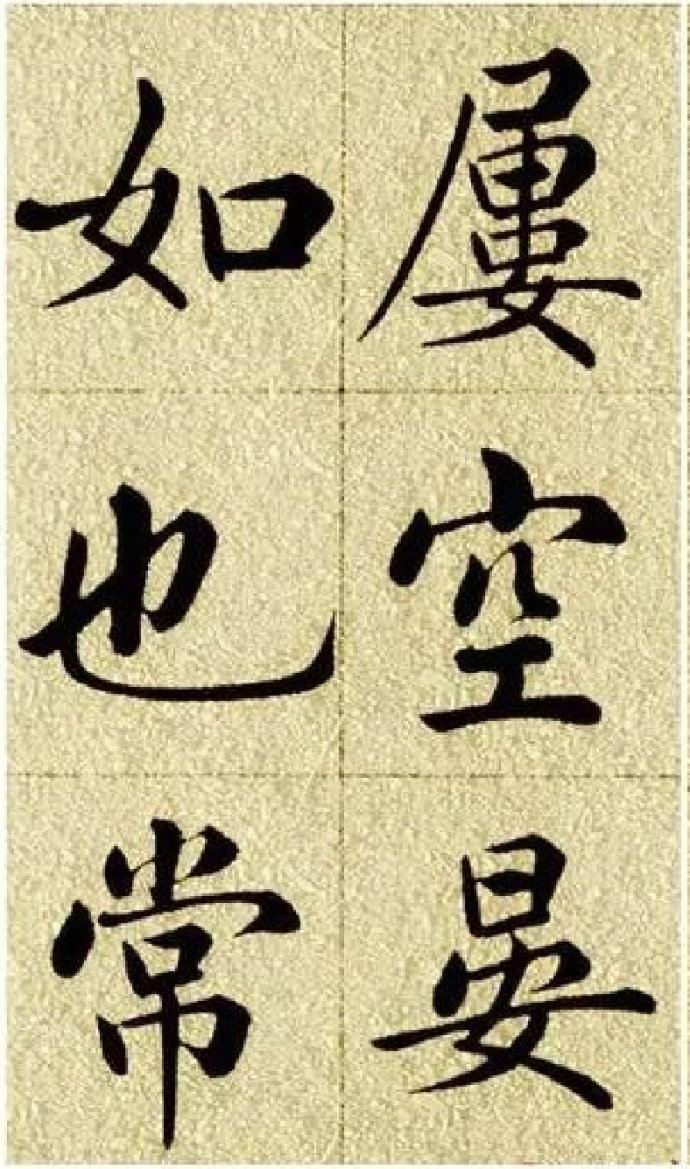 屢空晏
如也常